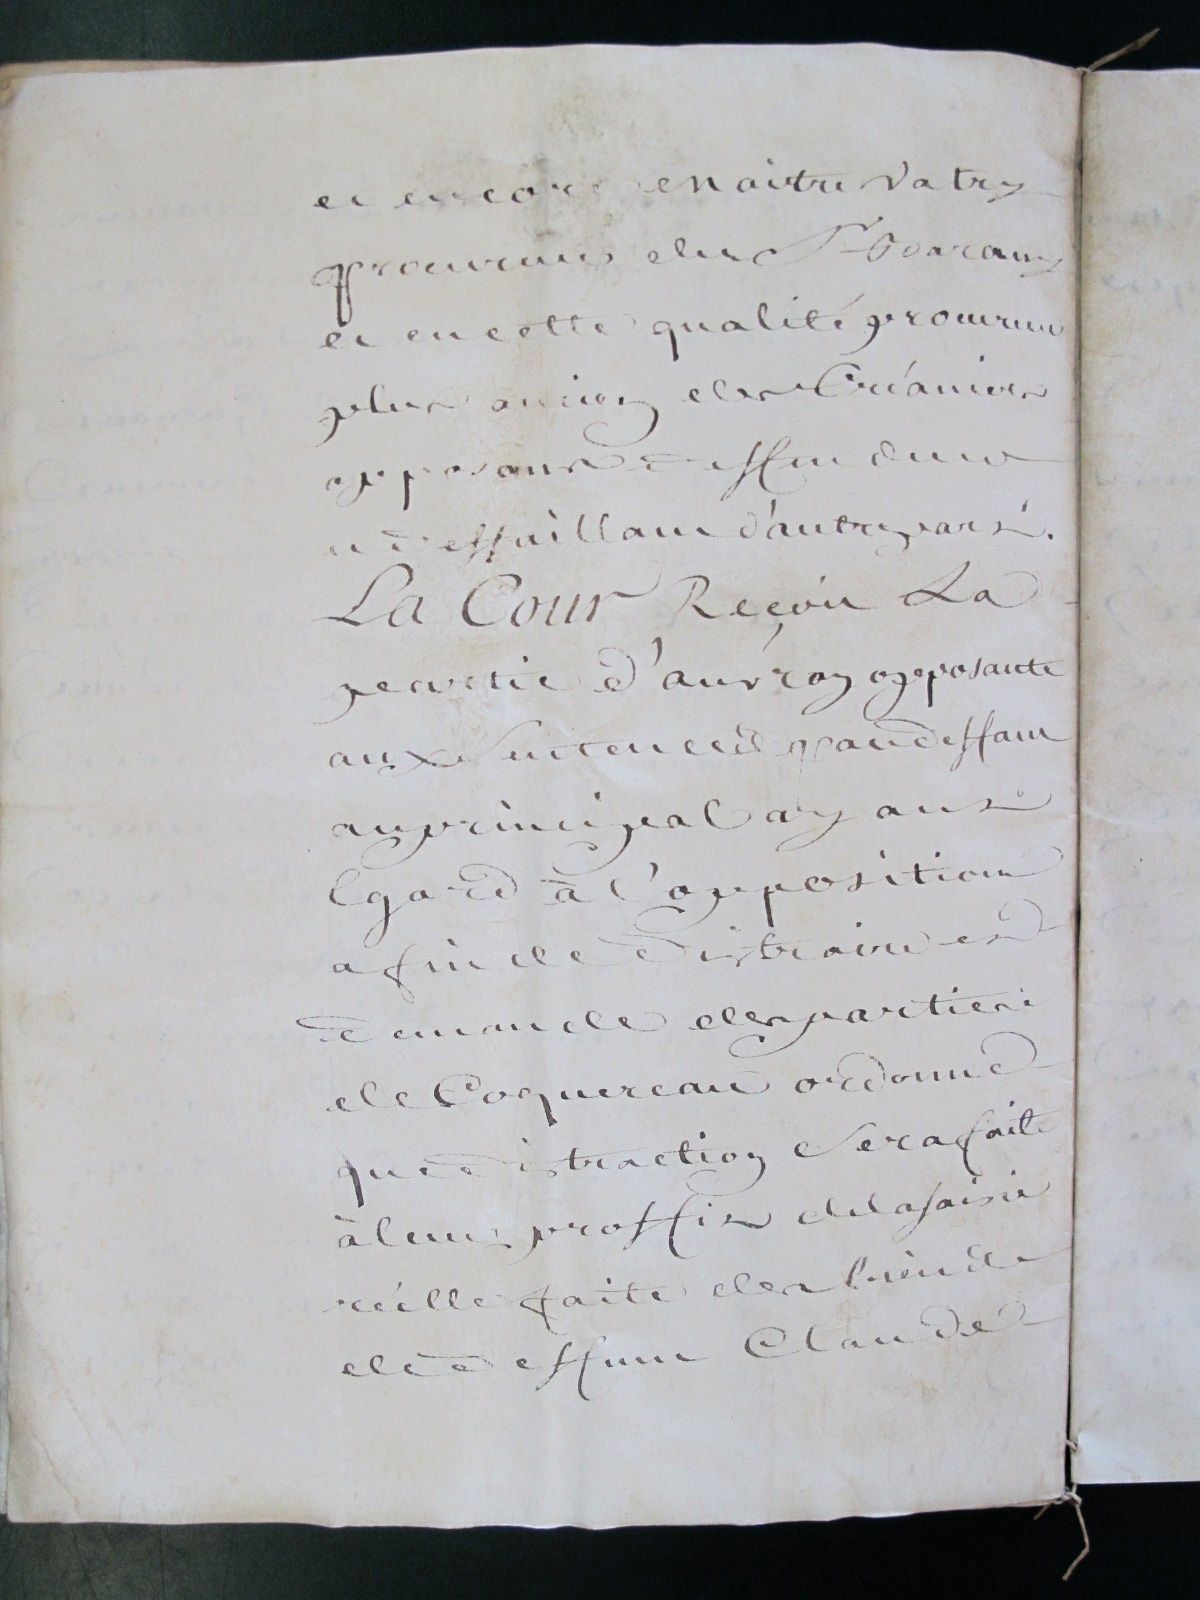 et encore Maitre Vatry
procureur du Sr
et en cette qualité procureur
plus ancien des Créanciers
opposants deffendeur
et deffaillant d'autre part.
La Cour Reçoit La
partie d'auvray opposante
aux Sentences par deffaut
au principal ayant
Egard à l'opposition
afin de distraire et
demande des parties
de Coquereau ordonne
que distraction Sera faite
à leur proffit de la saisie
réelle faite des biens
de deffunt Claude